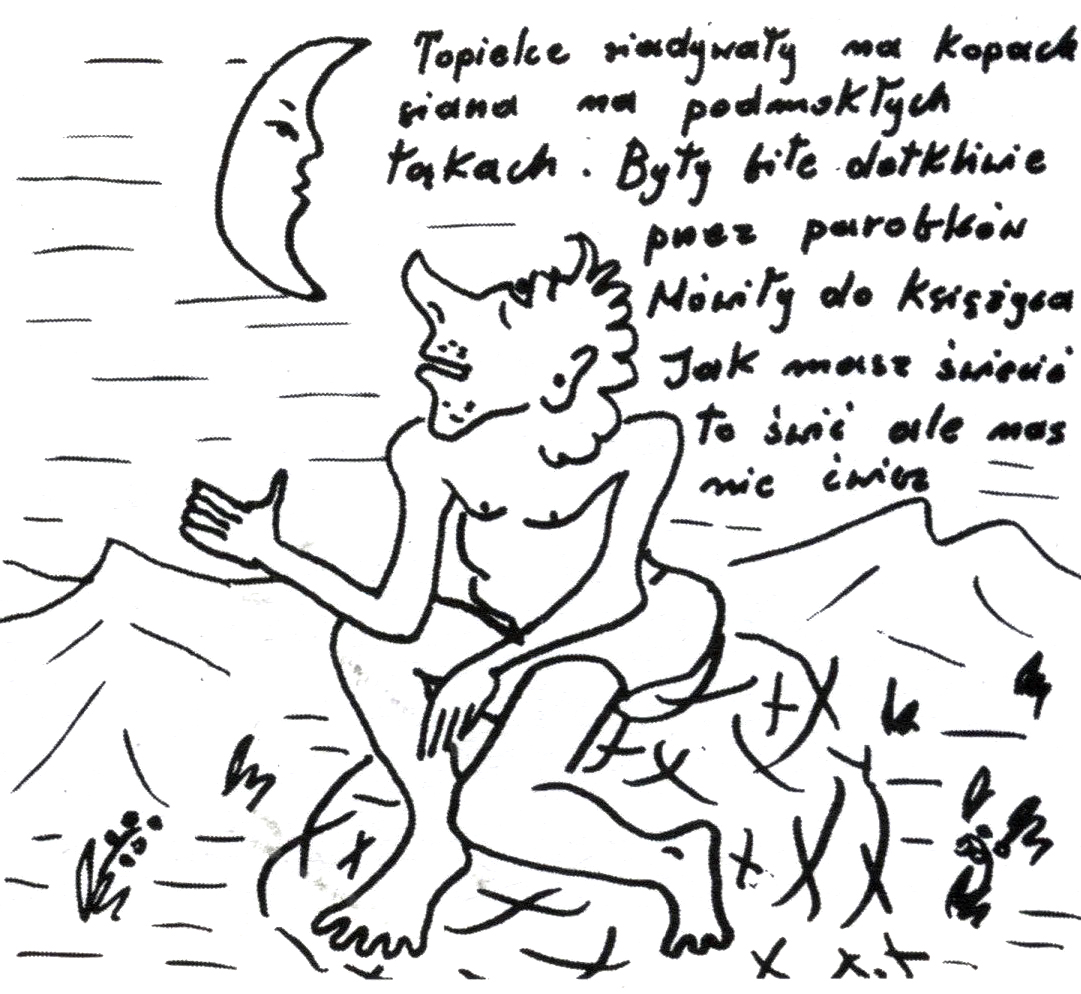 Topielce siadywały na kopach
siana na podmokłych
łąkach. Były bite dotkliwie
przez parobków
Mówiły do księżyca
Jak masz świecić
to świć ale nas
nie ćwicz